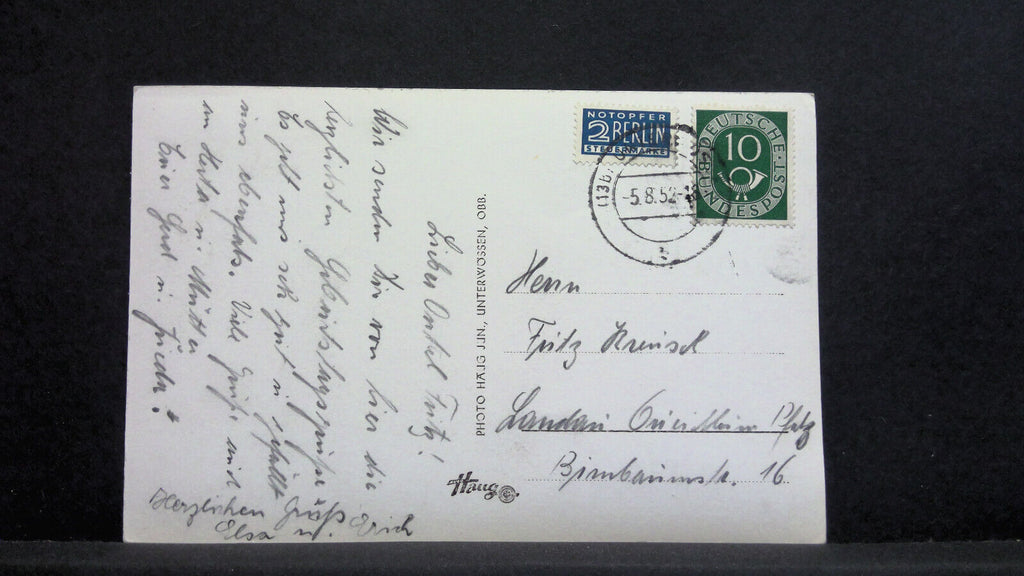 Lieber Onkel Fritz!
Wir senden Dir von hier die
herzlichsten Geburtstagsgrüße.
Es geht uns sehr gut u. gefällt
uns ebenfalls. Viele Grüße und
an Herta u. Mutter
Eure Gerd u. Frieda.
Herzlichen Gruß
Elsa u. Erich
PHOTO HAUG JUN., UNTERWOSSEN, OBB.
Haug
NOTOPFER
2 BERLIN
STEUERMARKE
DEUTSCHE
BUNDESPOST
10
(13b)
-5.8.52
Herrn
Fritz
Landau Pfalz
Birnbaumstr. 16